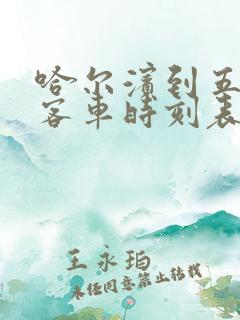 哈尔滨到五
客车时刻表
王永珀
未经同意禁止转载